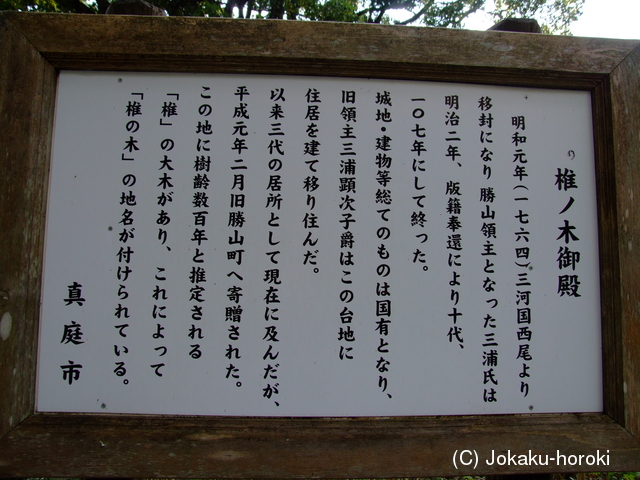 椎ノ木御殿
明和元年(一七六四)三河国西尾より
移封になり勝山領主となった三浦氏は
明治二年、版籍奉還により十代、
一〇七年にして終った。
城地・建物等総てのものは国有となり、
旧領主三浦顕次子爵はこの台地に
住居を建て移り住んだ。
以来三代の居所として現在に及んだが、
平成元年二月旧勝山町へ寄贈された。
この地に樹齢数百年と推定される
「椎」の大木があり、これによって
「椎の木」の地名が付けられている。
真庭市
(C) Jokaku-horoki